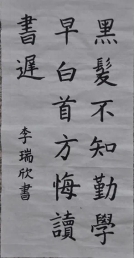 黑髮不知勤學
早白首方悔讀
書遲
李瑞欣書